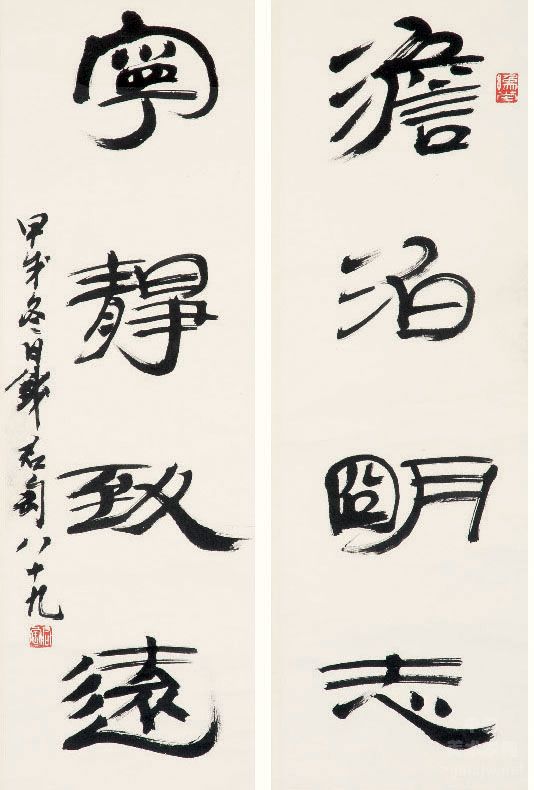 澹泊明志
寧靜致遠
甲戌冬日錢君匋八十九